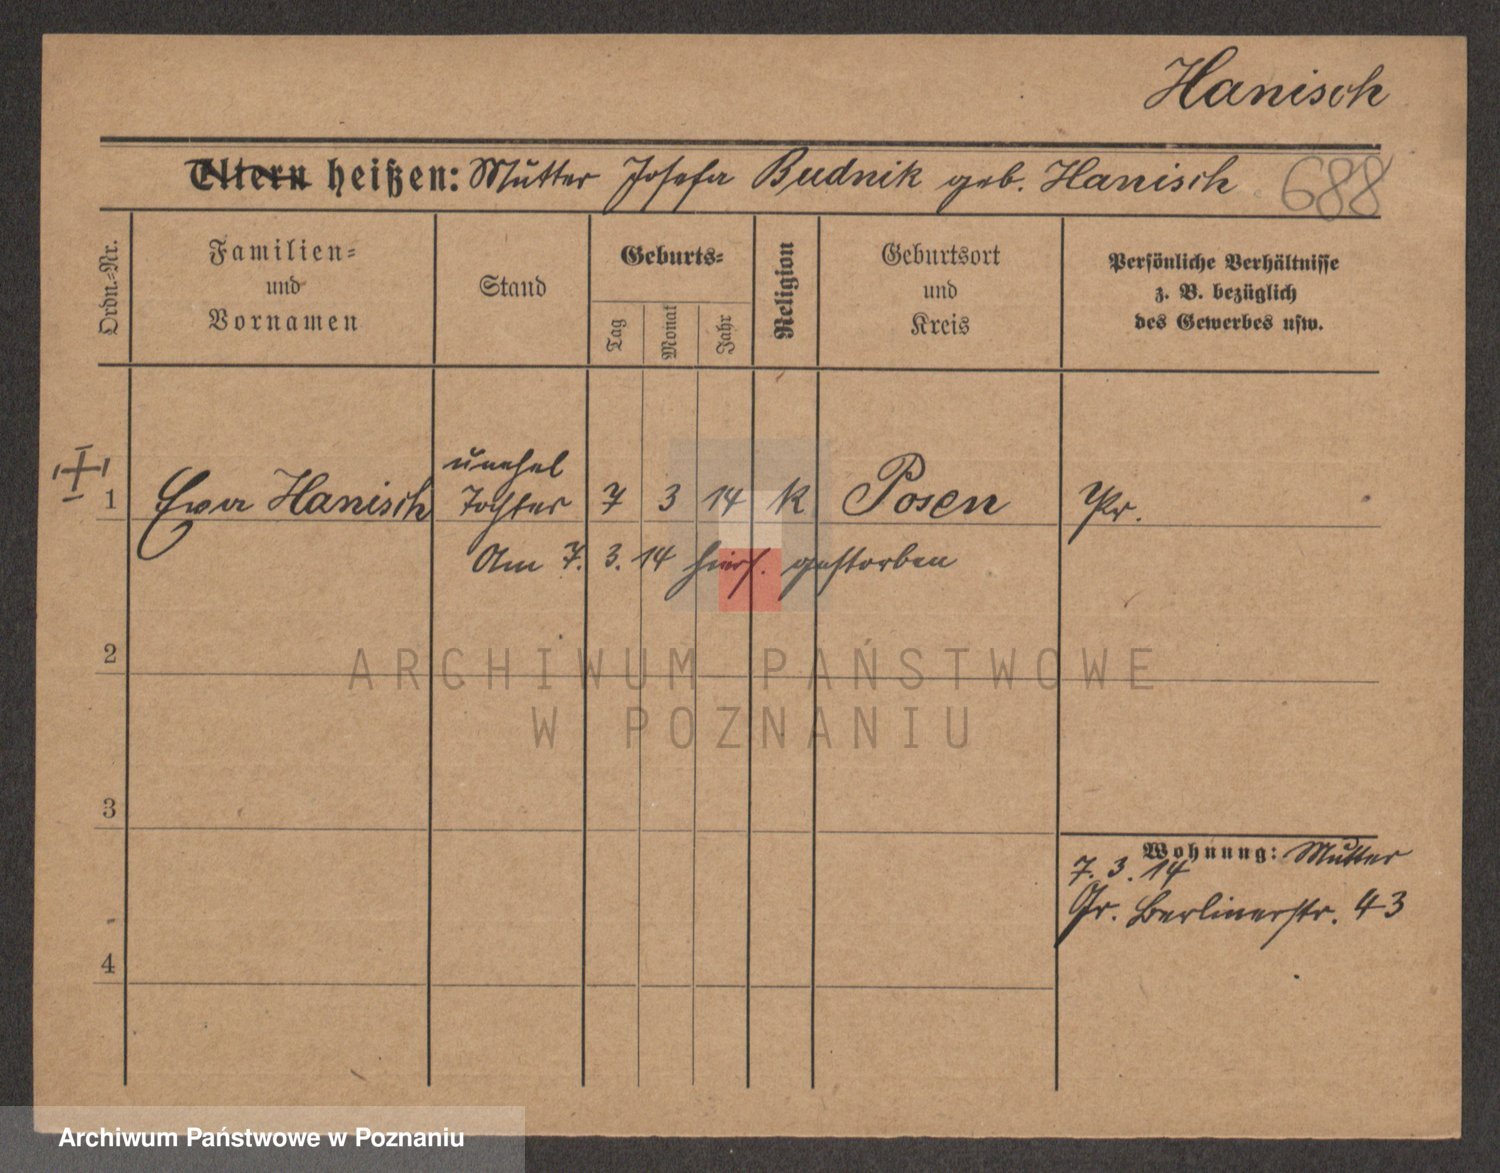 Hanisch
Eltern heißen: Mutter Josefa Budnik geb. Hanisch 688
Ordn.-Nr.
Familien-
und
Vornamen
Stand
Geburts-
Tag
Monat
Jahr
Religion
Geburtsort
und
Kreis
Persönliche Verhältnisse
z. B. bezüglich
des Gewerbes usw.
unehel
1 Eva Hanisch Tochter 7 3 14 k Posen Pr.
Am 7. 3. 14 hiers. gestorben
2
ARCHIWUM PAŃSTWOWE
W POZNANIU
3
Wohnung: Mutter
7. 3. 14
Gr. Berlinerstr. 43
4
Archiwum Państwowe w Poznaniu